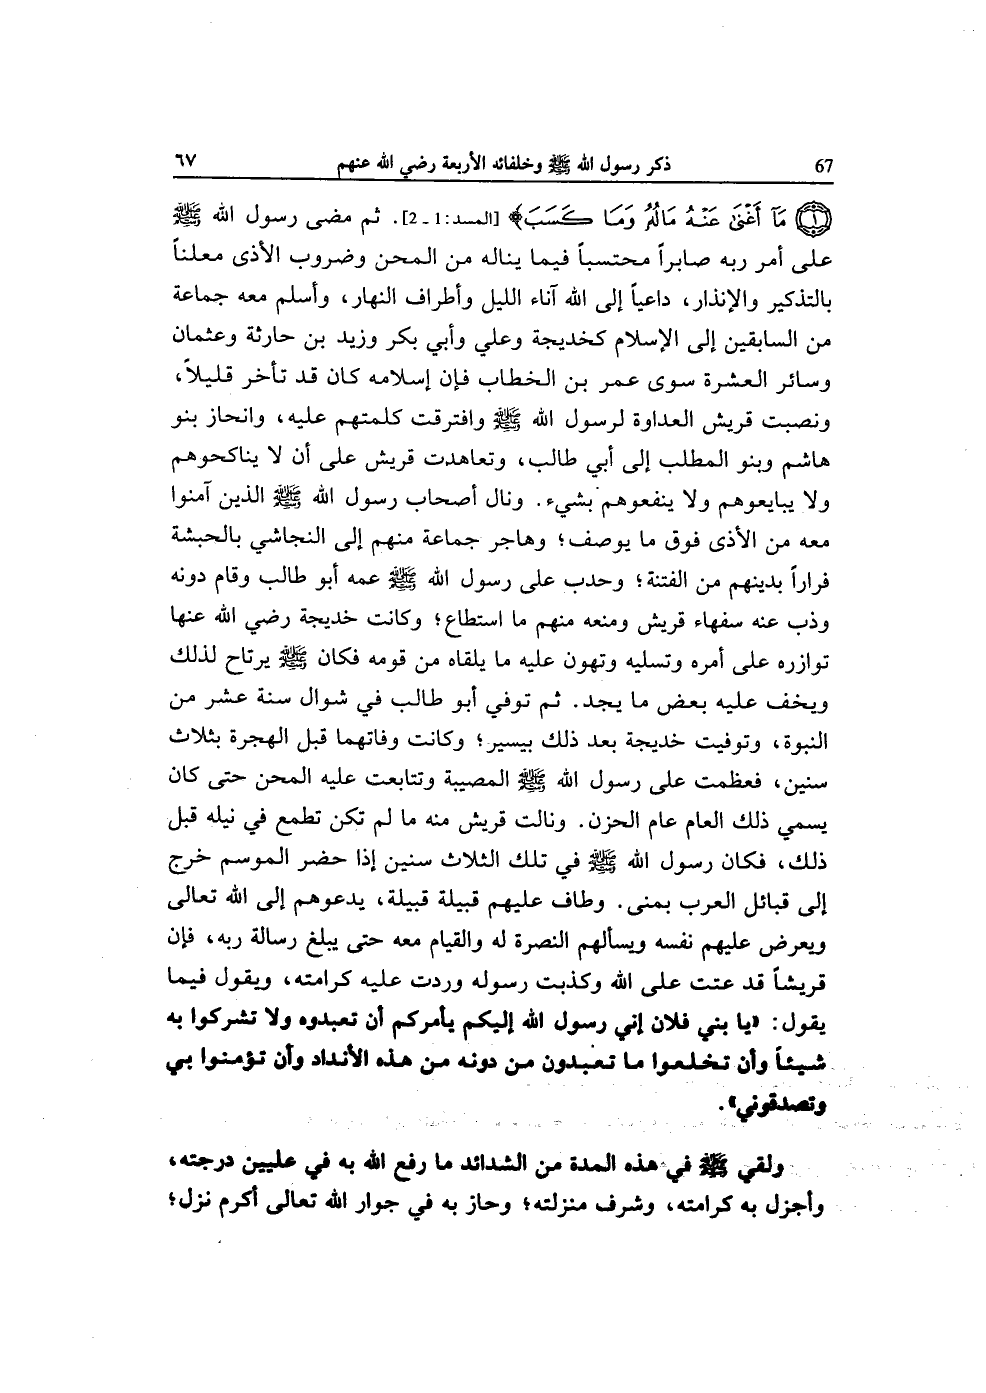 67 ذكر رسول الله ﷺ وخلفائه الأربعة رضي الله عنهم ٦٧
۝١ مَآ أَغْنَىٰ عَنْهُ مَالُهُۥ وَمَا كَسَبَ﴾ [المسد:1 ـ 2]. ثم مضى رسول الله ﷺ
على أمر ربه صابراً محتسباً فيما يناله من المحن وضروب الأذى معلناً
بالتذكير والإنذار، داعياً إلى الله آناء الليل وأطراف النهار، وأسلم معه جماعة
من السابقين إلى الإسلام كخديجة وعلي وأبي بكر وزيد بن حارثة وعثمان
وسائر العشرة سوى عمر بن الخطاب فإن إسلامه كان قد تأخر قليلاً،
ونصبت قريش العداوة لرسول الله ﷺ وافترقت كلمتهم عليه، وانحاز بنو
هاشم وبنو المطلب إلى أبي طالب، وتعاهدت قريش على أن لا يناكحوهم
ولا يبايعوهم ولا ينفعوهم بشيء. ونال أصحاب رسول الله ﷺ الذين آمنوا
معه من الأذى فوق ما يوصف؛ وهاجر جماعة منهم إلى النجاشي بالحبشة
فراراً بدينهم من الفتنة؛ وحدب على رسول الله ﷺ عمه أبو طالب وقام دونه
وذب عنه سفهاء قريش ومنعه منهم ما استطاع؛ وكانت خديجة رضي الله عنها
توازره على أمره وتسليه وتهون عليه ما يلقاه من قومه فكان ﷺ يرتاح لذلك
ويخف عليه بعض ما يجد. ثم توفي أبو طالب في شوال سنة عشر من
النبوة، وتوفيت خديجة بعد ذلك بيسير؛ وكانت وفاتهما قبل الهجرة بثلاث
سنين، فعظمت على رسول الله ﷺ المصيبة وتتابعت عليه المحن حتى كان
يسمي ذلك العام عام الحزن. ونالت قريش منه ما لم تكن تطمع في نيله قبل
ذلك، فكان رسول الله ﷺ في تلك الثلاث سنين إذا حضر الموسم خرج
إلى قبائل العرب بمنى. وطاف عليهم قبيلة قبيلة، يدعوهم إلى الله تعالى
ويعرض عليهم نفسه ويسألهم النصرة له والقيام معه حتى يبلغ رسالة ربه، فإن
قريشاً قد عتت على الله وكذبت رسوله وردت عليه كرامته، ويقول فيما
يقول: «يا بني فلان إني رسول الله إليكم يأمركم أن تعبدوه ولا تشركوا به
شيئاً وأن تخلعوا ما تعبدون من دونه من هذه الأنداد وأن تؤمنوا بي
وتصدقوني».
ولقي ﷺ في هذه المدة من الشدائد ما رفع الله به في عليين درجته،
وأجزل به كرامته، وشرف منزلته؛ وحاز به في جوار الله تعالى أكرم نزل؛